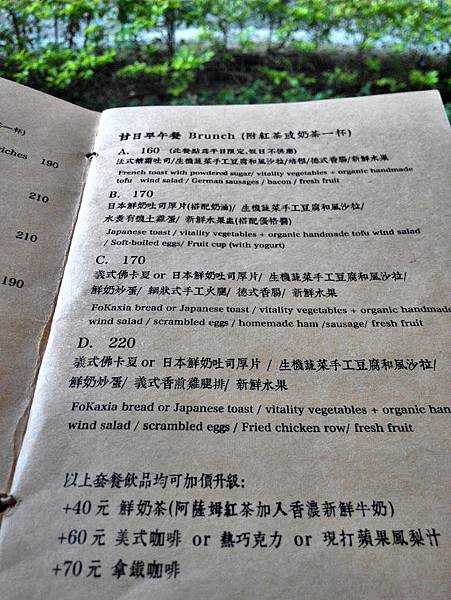 一杯)
riches 190
210
210
190
甘日早午餐 Brunch (附紅茶或奶茶一杯)
A. 160 (此餐點為平日限定,假日不供應)
法式糖霜吐司/生機蔬菜手工豆腐和風沙拉/培根/德式香腸/新鮮水果
French toast with powdered sugar/ vitality vegetables + organic handmade
tofu wind salad / German sausages / bacon / fresh fruit
B. 170
日本鮮奶吐司厚片(搭配奶油)/ 生機蔬菜手工豆腐和風沙拉/
水煮有機土雞蛋/ 新鮮水果盅(搭配優格醬)
Japanese toast / vitality vegetables + organic handmade tofu wind salad
/ Soft-boiled eggs/ Fruit cup (with yogurt)
C. 170
義式佛卡夏 or 日本鮮奶吐司厚片/ 生機蔬菜手工豆腐和風沙拉/
鮮奶炒蛋/ 網狀式手工火腿/ 德式香腸/ 新鮮水果
FoKaxia bread or Japanese toast / vitality vegetables + organic handmade
wind salad / scrambled eggs / homemade ham /sausage/ fresh fruit
D. 220
義式佛卡夏 or 日本鮮奶吐司厚片 / 生機蔬菜手工豆腐和風沙拉/
鮮奶炒蛋/ 義式香煎雞腿排/ 新鮮水果
FoKaxia bread or Japanese toast / vitality vegetables + organic han
wind salad / scrambled eggs / Fried chicken row/ fresh fruit
以上套餐飲品均可加價升級:
+40元 鮮奶茶(阿薩姆紅茶加入香濃新鮮牛奶)
+60元 美式咖啡 or 熱巧克力 or 現打蘋果鳳梨汁
+70元 拿鐵咖啡